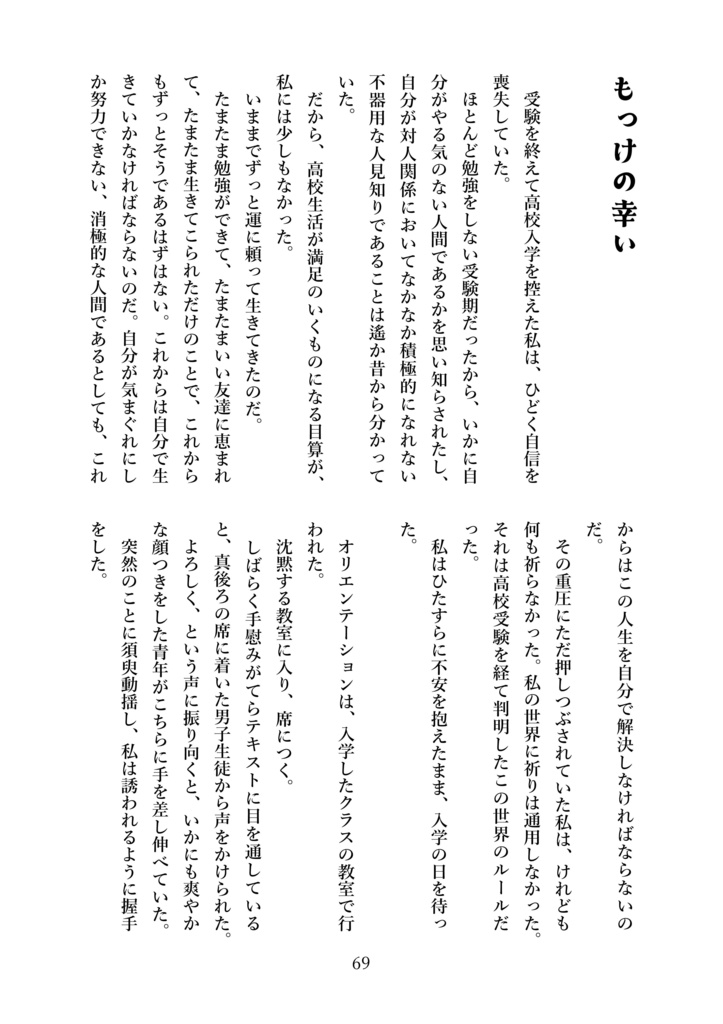 もっけの幸い
受験を終えて高校入学を控えた私は、ひどく自信を
喪失していた。
ほとんど勉強をしない受験期だったから、いかに自
分がやる気のない人間であるかを思い知らされたし、
自分が対人関係においてなかなか積極的になれない
不器用な人見知りであることは遙か昔から分かって
いた。
だから、高校生活が満足のいくものになる目算が、
私には少しもなかった。
いままでずっと運に頼って生きてきたのだ。
たまたま勉強ができて、たまたまいい友達に恵まれ
て、たまたま生きてこられただけのことで、これから
もずっとそうであるはずはない。これからは自分で生
きていかなければならないのだ。自分が気まぐれにし
か努力できない、消極的な人間であるとしても、これ
からはこの人生を自分で解決しなければならないの
だ。
その重圧にただ押しつぶされていた私は、けれども
何も祈らなかった。私の世界に祈りは通用しなかった。
それは高校受験を経て判明したこの世界のルールだ
った。
私はひたすらに不安を抱えたまま、入学の日を待っ
た。
オリエンテーションは、入学したクラスの教室で行
われた。
沈黙する教室に入り、席につく。
しばらく手慰みがてらテキストに目を通している
と、真後ろの席に着いた男子生徒から声をかけられた。
よろしく、という声に振り向くと、いかにも爽やか
な顔つきをした青年がこちらに手を差し伸べていた。
突然のことに須臾動揺し、私は誘われるように握手
をした。
69